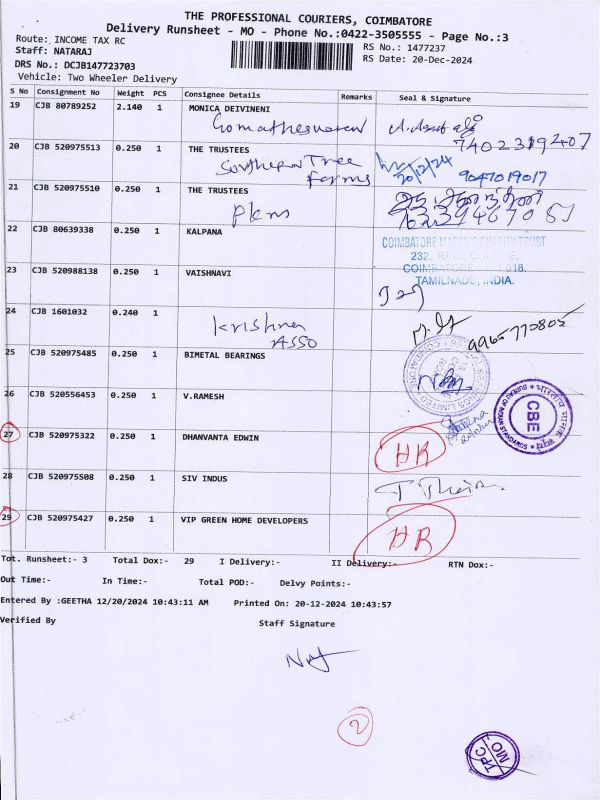 THE PROFESSIONAL COURIERS, COIMBATORE
Delivery Runsheet - MO - Phone No.:0422-3505555 - Page No.:3
Route: INCOME TAX RC
Staff: NATARAJ
RS No.: 1477237
DRS No.: DCJB147723703
RS Date: 20-Dec-2024
Vehicle: Two Wheeler Delivery
S No Consignment No Weight PCS Consignee Details Remarks Seal & Signature
19 CJB 80789252 2.140 1 MONICA DEIVINENI
7402319207
20 CJB 520975513 0.250 1 THE TRUSTEES
Southern Tree
farms
20/12/24
9047019017
21 CJB 520975510 0.250 1 THE TRUSTEES
22 CJB 80639338 0.250 1 KALPANA
COIMBATORE MASONIC CHARITY TRUST
232,
COIMBATORE 018.
TAMILNADU, INDIA.
23 CJB 520988138 0.250 1 VAISHNAVI
24 CJB 1601032 0.240 1
Krishna
ASSO
25 CJB 520975485 0.250 1 BIMETAL BEARINGS
26 CJB 520556453 0.250 1 V.RAMESH
BUREAU OF INDIAN STANDARDS
CBE
27 CJB 520975322 0.250 1 DHANVANTA EDWIN
HR
28 CJB 520975508 0.250 1 SIV INDUS
29 CJB 520975427 0.250 1 VIP GREEN HOME DEVELOPERS
HR
Tot. Runsheet:- 3 Total Dox:- 29 I Delivery:- II Delivery:- RTN Dox:-
Out Time:- In Time:- Total POD:- Delvy Points:-
Entered By :GEETHA 12/20/2024 10:43:11 AM Printed On: 20-12-2024 10:43:57
Verified By Staff Signature
2
TPC
MO